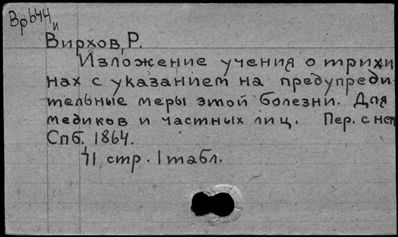 Вр644
и
Вирхов, Р.
Изложение учения о трихи
нах с указанием на предупреди-
тельные меры этой болезни. Для
медиков и частных лиц. Пер. с нем
Спб. 1864.
41 стр. 1 табл.